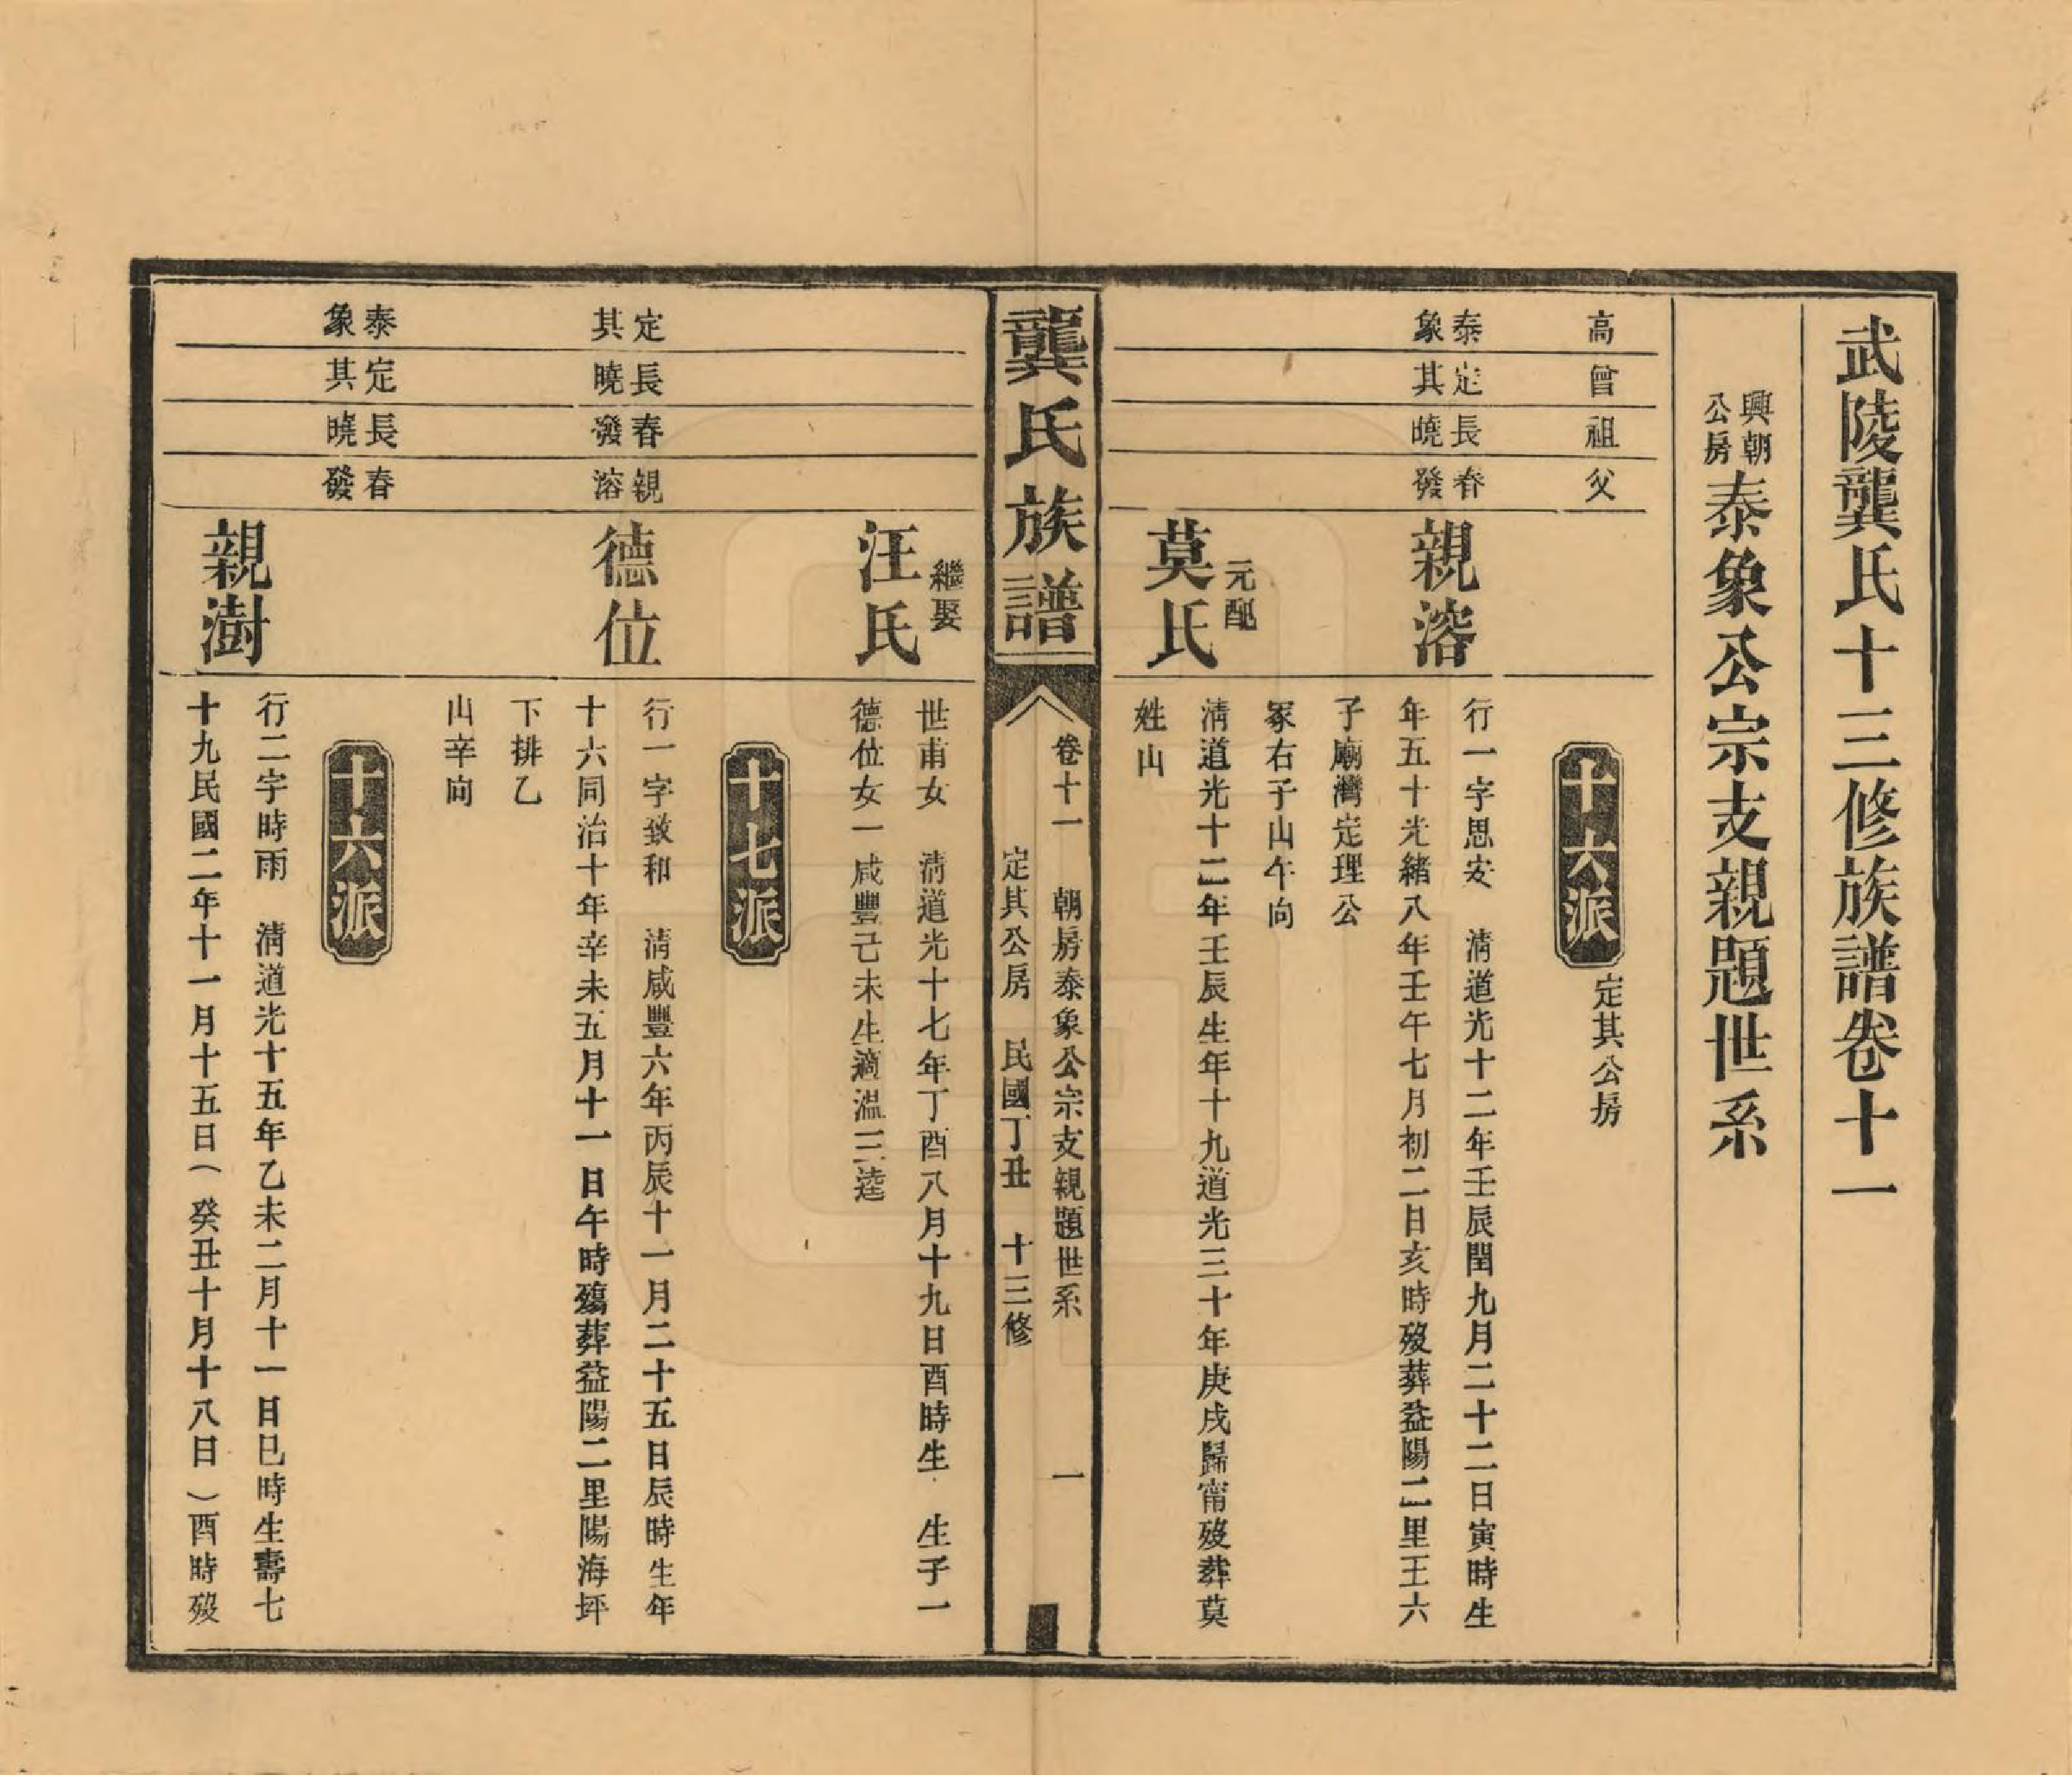 武陵龔氏十三修族譜卷十一
興朝
公房
泰象公宗支親題世系
高
曾
祖
父
十六派
定其公房
泰象
定其
長曉
春發
親溶
行一字思安　清道光十二年壬辰閏九月二十二日寅時生
年五十光緒八年壬午七月初二日亥時歿葬益陽二里王六
子廟灣定理公
冢右子山午向
元配
莫氏
清道光十二年壬辰生年十九道光三十年庚戌歸甯歿葬莫
姓山
龔氏族譜
卷十一　朝房泰象公宗支親題世系　一
定其公房　民國丁丑　十三修
繼娶
汪氏
世甫女　清道光十七年丁酉八月十九日酉時生　生子一
德位女一咸豐己未生適溫三逵
十七派
定其
長曉
春發
親溶
德位
行一字致和　清咸豐六年丙辰十一月二十五日辰時生年
十六同治十年辛未五月十一日午時殤葬益陽二里陽海坪
下排乙
山辛向
十六派
泰象
定其
長曉
春發
親澍
行二字時雨　清道光十五年乙未二月十一日巳時生壽七
十九民國二年十一月十五日（癸丑十月十八日）酉時歿